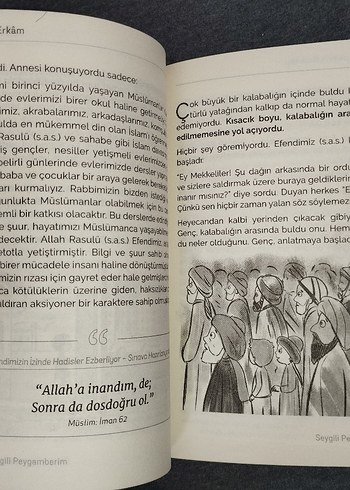 Erkâm
di. Annesi konuşuyordu sadece:
ni birinci yüzyılda yaşayan Müslüman
de evlerimizi birer okul haline getirme
imiz, akrabalarımız, arkadaşlarımız, komşu
ulda en mükemmel din olan İslam'ı öğren
Rasulü (s.a.s.) ve sahabe gibi İslam davası
iş gençler, nesiller yetişmeli evlerimizde
belirli günlerinde evlerimizde dersler yap
baba ve çocuklar bir araya gelerek bereke
arı kurmalıyız. Rabbimizin bizden istediği
gunlukta Müslümanlar olabilmek için bu de
emli bir katkısı olacaktır. Bu derslerde edi
şuur, hayatımızı Müslümanca yaşayabilme
decektir. Allah Rasulü (s.a.s.) Efendimiz as
etotla yetiştirmiştir. Bilgi ve şuur sahibi on
birer mücadele insanı haline dönüştürmüş
mizin rızası için gayret eder hale gelmişler
ca kötülüklerin üzerine giden, haksızlık
ldıran aksiyoner bir karaktere sahip olma
ndimizin İzinde Hadisler Ezberliyor – Sınava Hazırlan
“Allah’a inandım, de;
Sonra da dosdoğru ol.”
Müslim: İman 62
gili Peygamberim
Çok büyük bir kalabalığın içinde buldu
türlü yatağından kalkıp da normal haya
edemiyordu. Kısacık boyu, kalabalığın ara
edilmemesine yol açıyordu.
Hiçbir şey göremiyordu. Efendimiz (s.a.s.)
başladı:
"Ey Mekkeliler! Şu dağın arkasında bir ordu
ve sizlere saldırmak üzere buraya geldiklerin
inanır mısınız?" diye sordu. Duyan herkes "E
Çünkü sen hiçbir zaman yalan söz söylemez
Heyecandan kalbi yerinden çıkacak gibiy
Genç, kalabalığın arasında buldu onu. Hem
du neler olduğunu. Genç, anlatmaya başla
Sevgili Pey